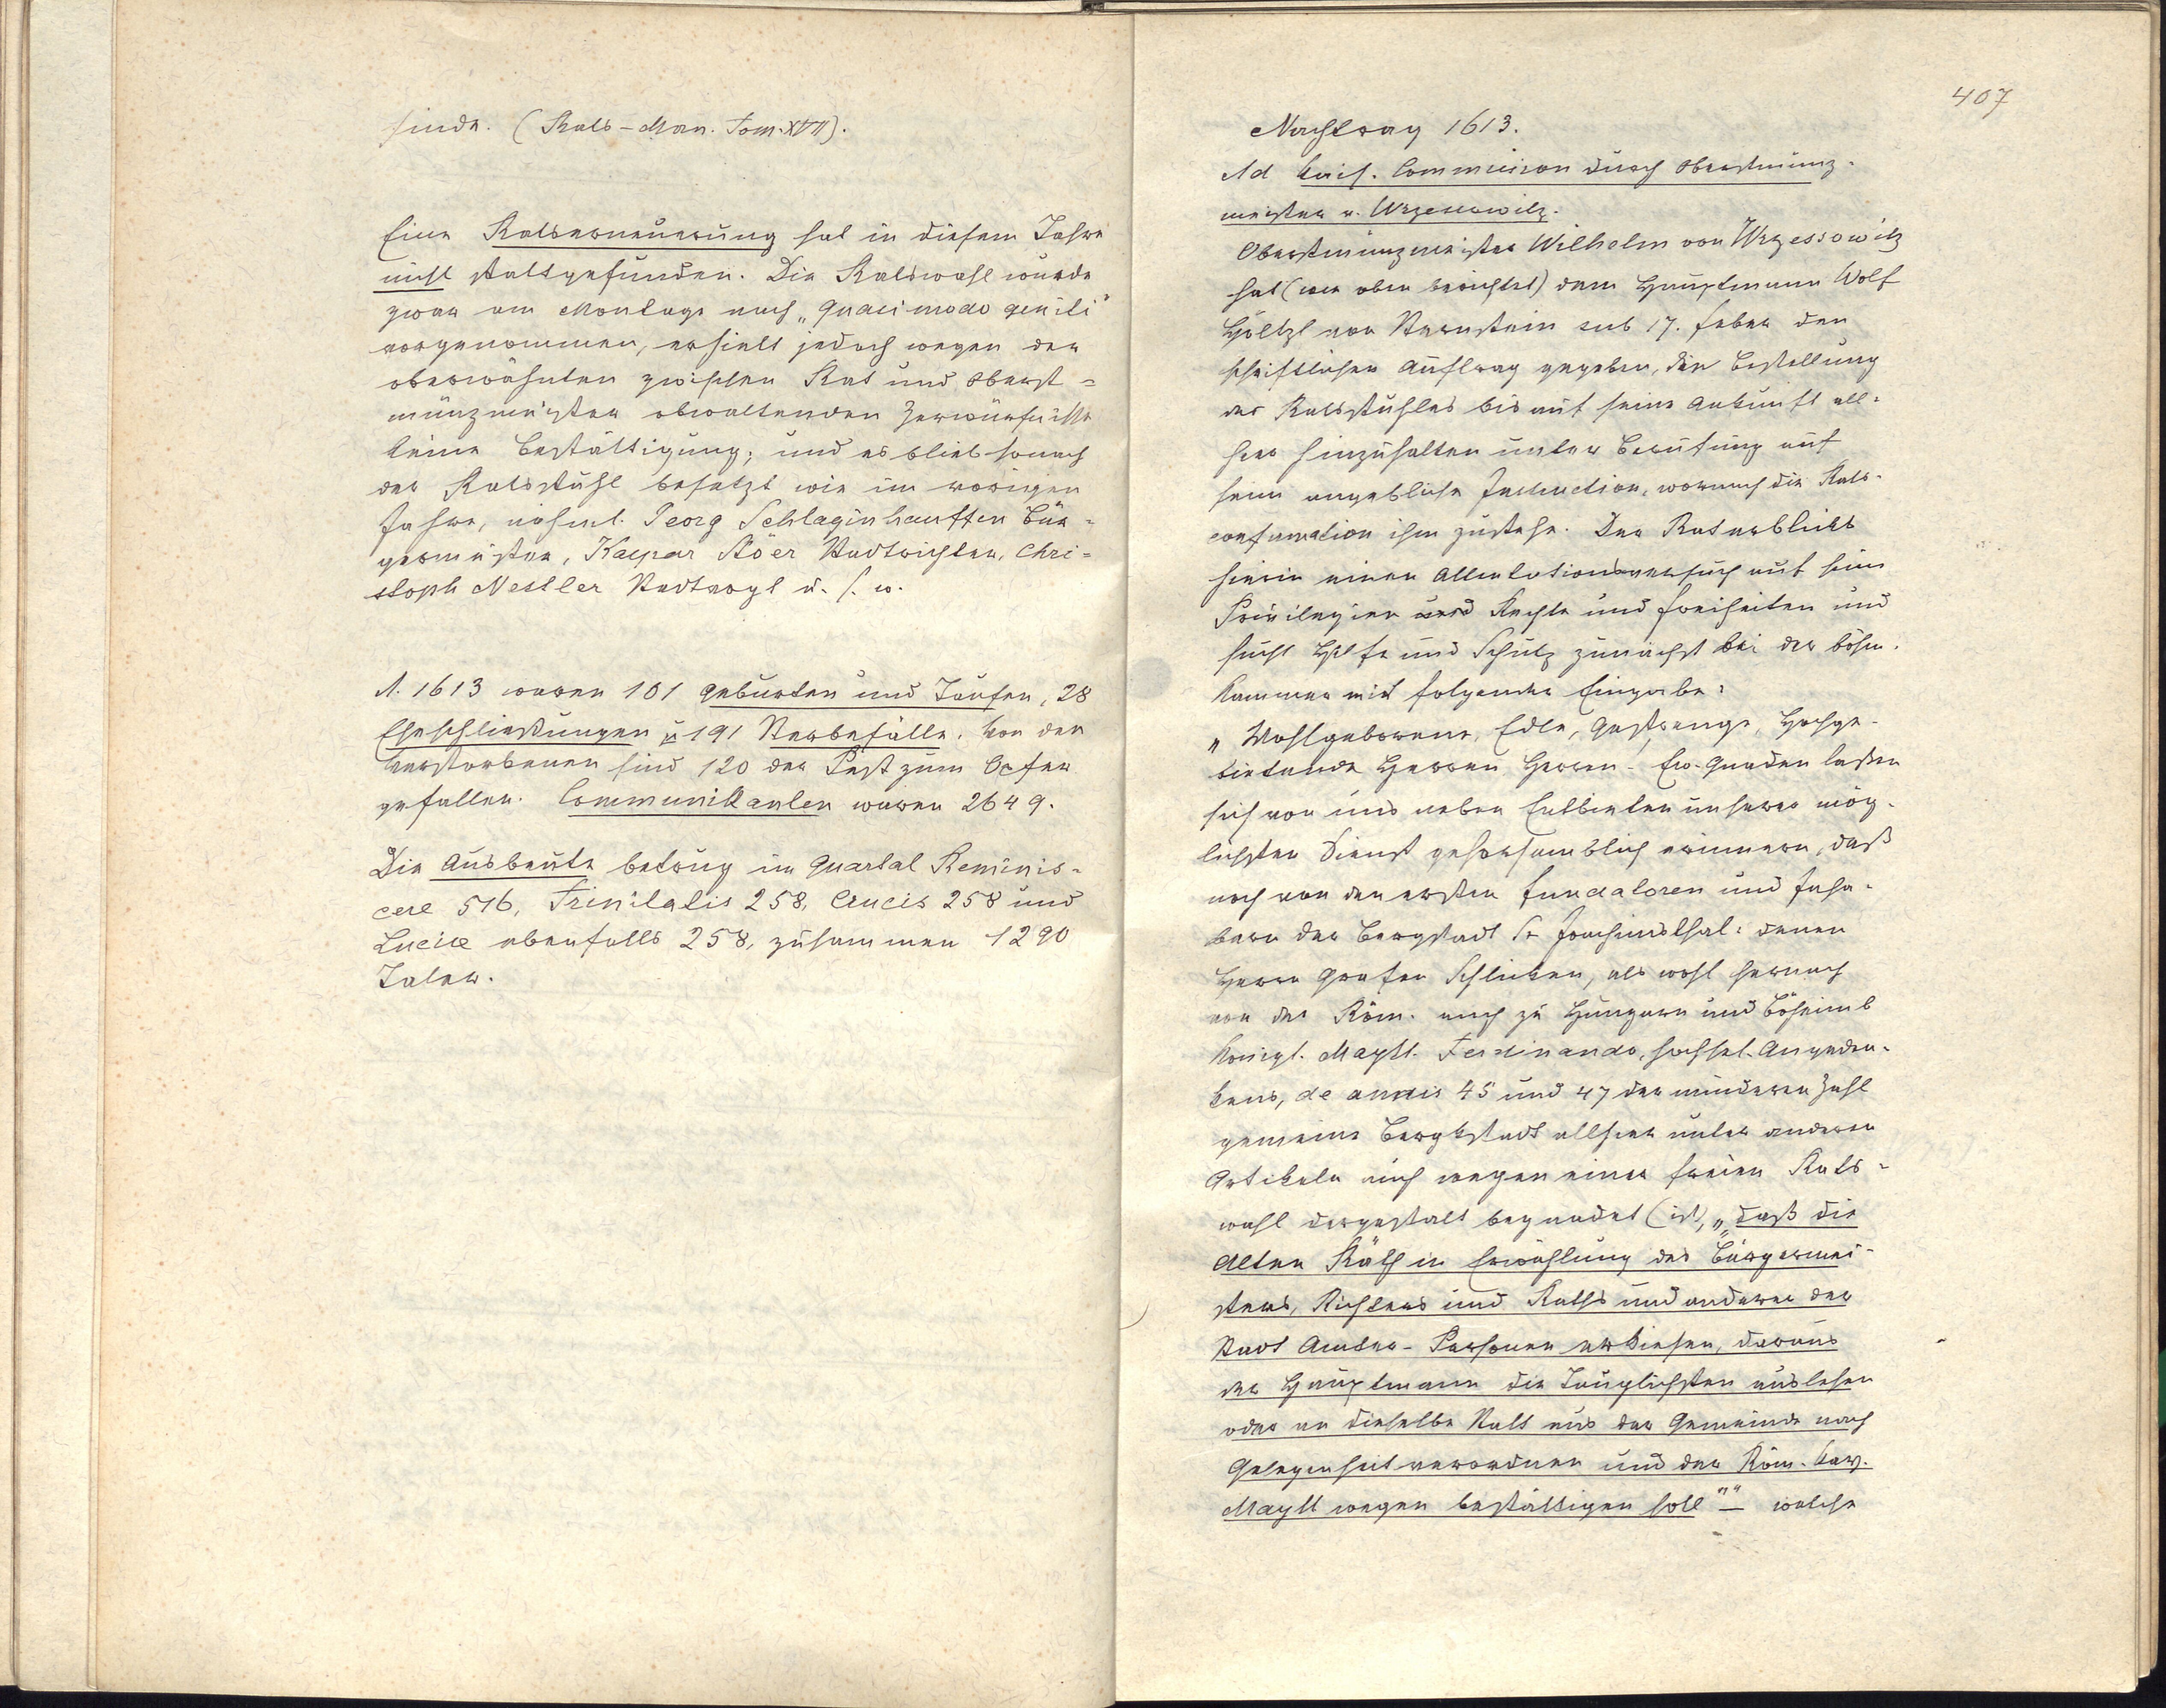 finde. (Rats-Man. Tom. XVII).
Eine Ratserneuerung hat in diesem Jahre
nicht stattgefunden. Die Ratswahl wurde
zwar am Montage nach „Quasimodo geniti"
vorgenommen, erhielt jedoch wegen der
oberwähnten zwischen Rat und Oberst=
münzmeister obwaltenden Zerwürfnisse
keine Bestättigung; und es blieb sonach
der Ratsstuhl besetzt wie im vorigen
Jahre, nähml. Georg Schlaginhauffen Bür=
germeister, Kaspar Stöer Stadtrichter, Chri=
stoph Nestler Stadtvogt u. s. w.
A. 1613 waren 101 Geburten und Taufen, 28
Eheschließungen u 191 Sterbefälle. Von den
Verstorbenen sind 120 der Pest zum Opfer
gefallen. Communikanten waren 2649.
Die Ausbeute betrug im Quartal Reminis-
cere 516, Trinitatis 258, Crucis 258 und
Luciæ ebenfalls 258, zusammen 1290
Taler.
407
Nachtrag 1613.
Ad kais. Commission durch Oberstmünz-
meister v. Wrzessowitz.
Oberstmünzmeister Wilhelm von Wrzessowitz
hat (wie oben berichtet) dem Hauptmann Wolf
Höltzl von Sternstein sub 17. Feber den
schriftlichen Auftrag gegeben, die Bestellung
des Ratsstuhles bis auf seine Ankunft all-
hier hinzuhalten unter Berufung auf
seine angebliche Instruction, wornach die Rats-
confirmation ihm zustehe. Der Rat erblickt
hierin einen Attentationsversuch auf seine
Privilegien und Rechte und Freiheiten und
sucht Hilfe und Schutz zunächst bei der böhm.
Kammer mit folgender Eingabe:
„Wohlgeborene, Edle, Gestrenge, Hochge-
bietende Herren Herren. Ew. Gnaden laßen
sich von uns neben Entbieten unserer mög-
lichsten Dienst gehorsamblich erinnern, daß
noch von den ersten Fundatoren und Inha-
bern der Bergstadt St Joachimsthal: denen
Herrn Grafen Schlicken, als wohl hernach
von der Röm. auch zu Hungarn und Böheimb
Königl. Maytt. Ferdinando, hochsel. Angeden-
kens, de annis 45 und 47 der minderen Zahl
gemeine Bergkstadt allhier unter anderen
Artikeln auch wegen einer freien Rats-
wahl dergestalt begnadet (ist), „„daß die
Alten Räth in Erwählung des Bürgermei-
sters, Richters und Raths und anderer der
Stadt Ämter-Personen erkiesen, daraus
der Hauptmann die Tauglichsten auslesen
oder an dieselbe Statt aus der Gemeinde nach
Gelegenheit verordnen und der Röm. Kay.
Maytt wegen bestättigen soll"" welche